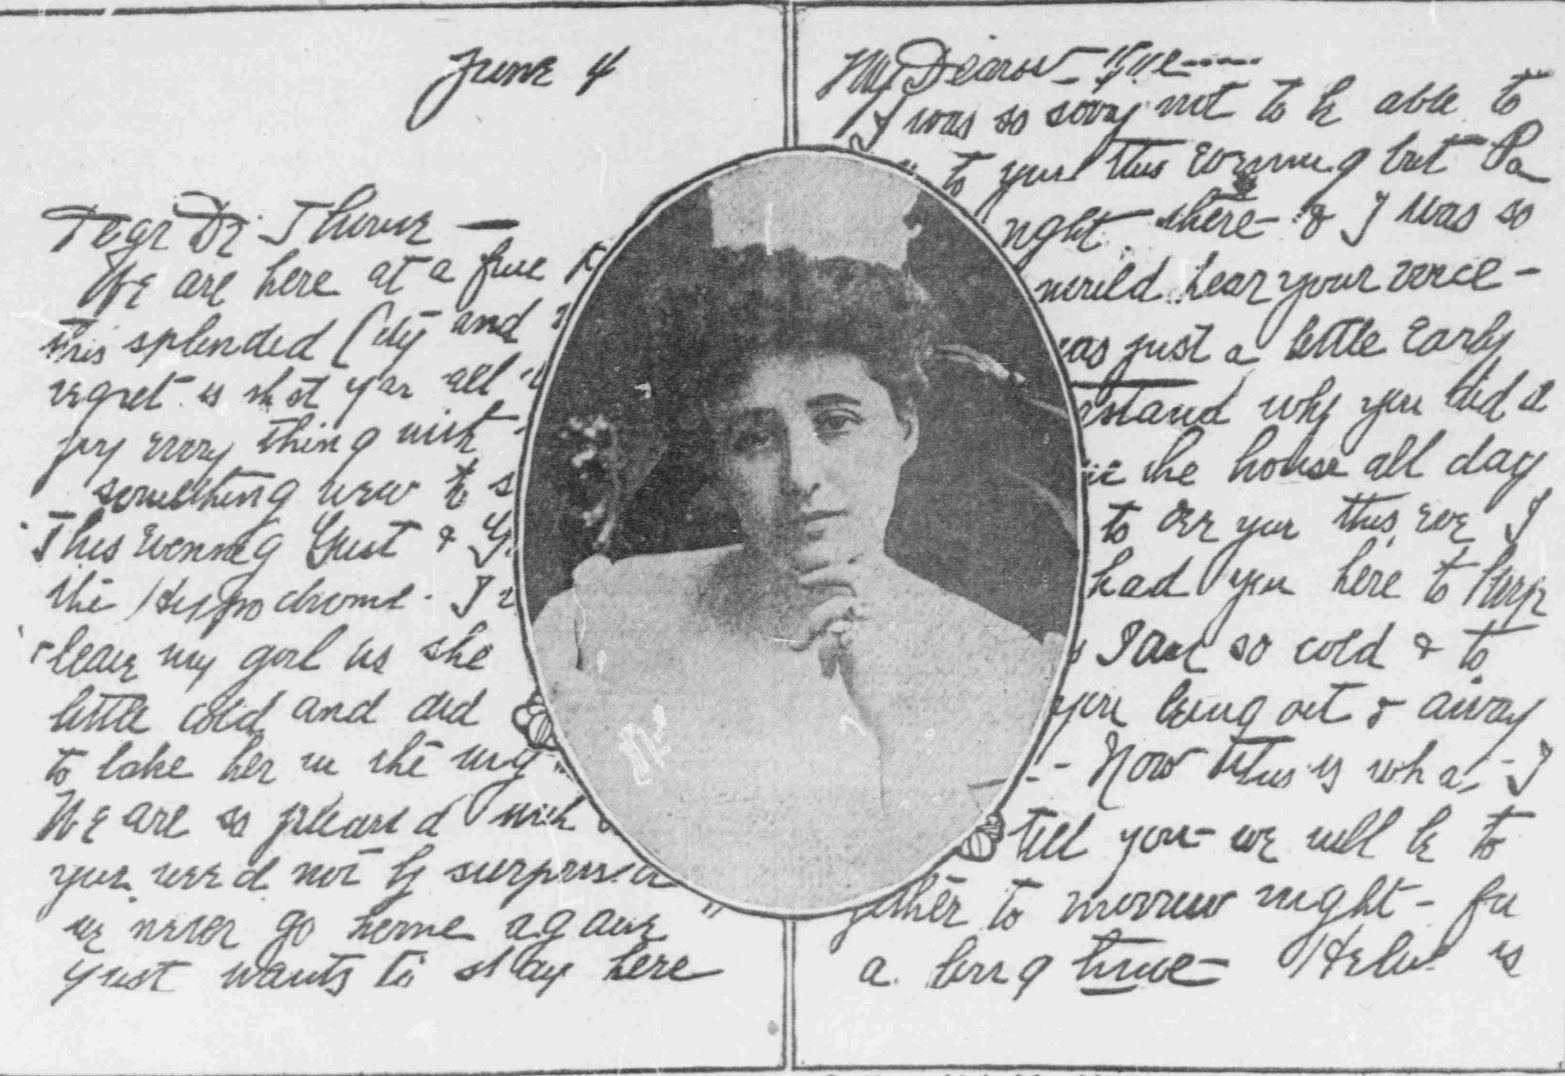 June 4
Dear Dr Thome —
We are here at a fine
this splendid City and
regret is that you all
joy every thing with
something new to s
This Evening Gust &
the Hippodrome - I
leave my girl as she
little cold and did
to take her in the nig
We are so pleased with
you need not be surprised
we never go home again
Gust wants to stay here
My Dearest
I was so sorry not to be able to
to you this Evening but Pa
right there & I was so
would hear your voice —
was just a little Early
erstand why you did
the house all day
to see you this eve I
had you here to keep
I am so cold & to
you being out & away
Now this is what I
tell you we will be to
gether to morrow night — for
a long time — Helen is